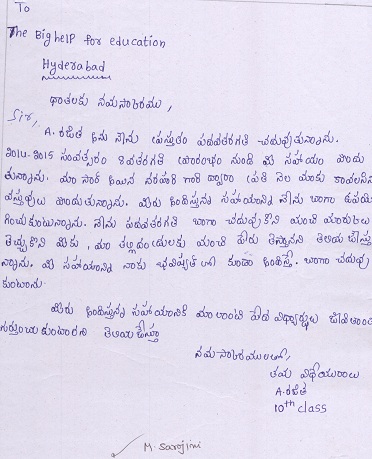 To
The Bighelp for education
Hyderabad
దాతలకు నమస్కారము,
Sir,
A. రజిత అను నేను ప్రస్తుతం పదవతరగతి చదువుతున్నాను.
2014-2015 సంవత్సరం 8వతరగతి ప్రారంభం నుండి మీ సహాయం పొందు
తున్నాను. మా సార్ అయిన గారి ద్వారా ప్రతి నెల మాకు కావలసిన
వస్తువులు పొందుతున్నాను. మీరు అందిస్తున్న సహాయాన్ని నేను బాగా ఉపయో
గించుకుంటున్నాను. నేను పదవతరగతి బాగా చదువుకొని మంచి మార్కులు
తెచ్చుకొని మీకు, మా తల్లిదండ్రులకు మంచి పేరు తెస్తానని తెలియ చేస్తు
న్నాను. మీ సహాయాన్ని నాకు భవిష్యత్ లో కూడా అందిస్తే. బాగా చదువు
కుంటాను.
మీరు అందిస్తున్న సహాయానికి మాలాంటి పేద విద్యార్థులు జీవితాంతం
గుర్తుంచుకుంటారని తెలియచేస్తూ
నమస్కారములతో,
తమ విధేయురాలు
A. రజిత
10th class
M. Sarojini